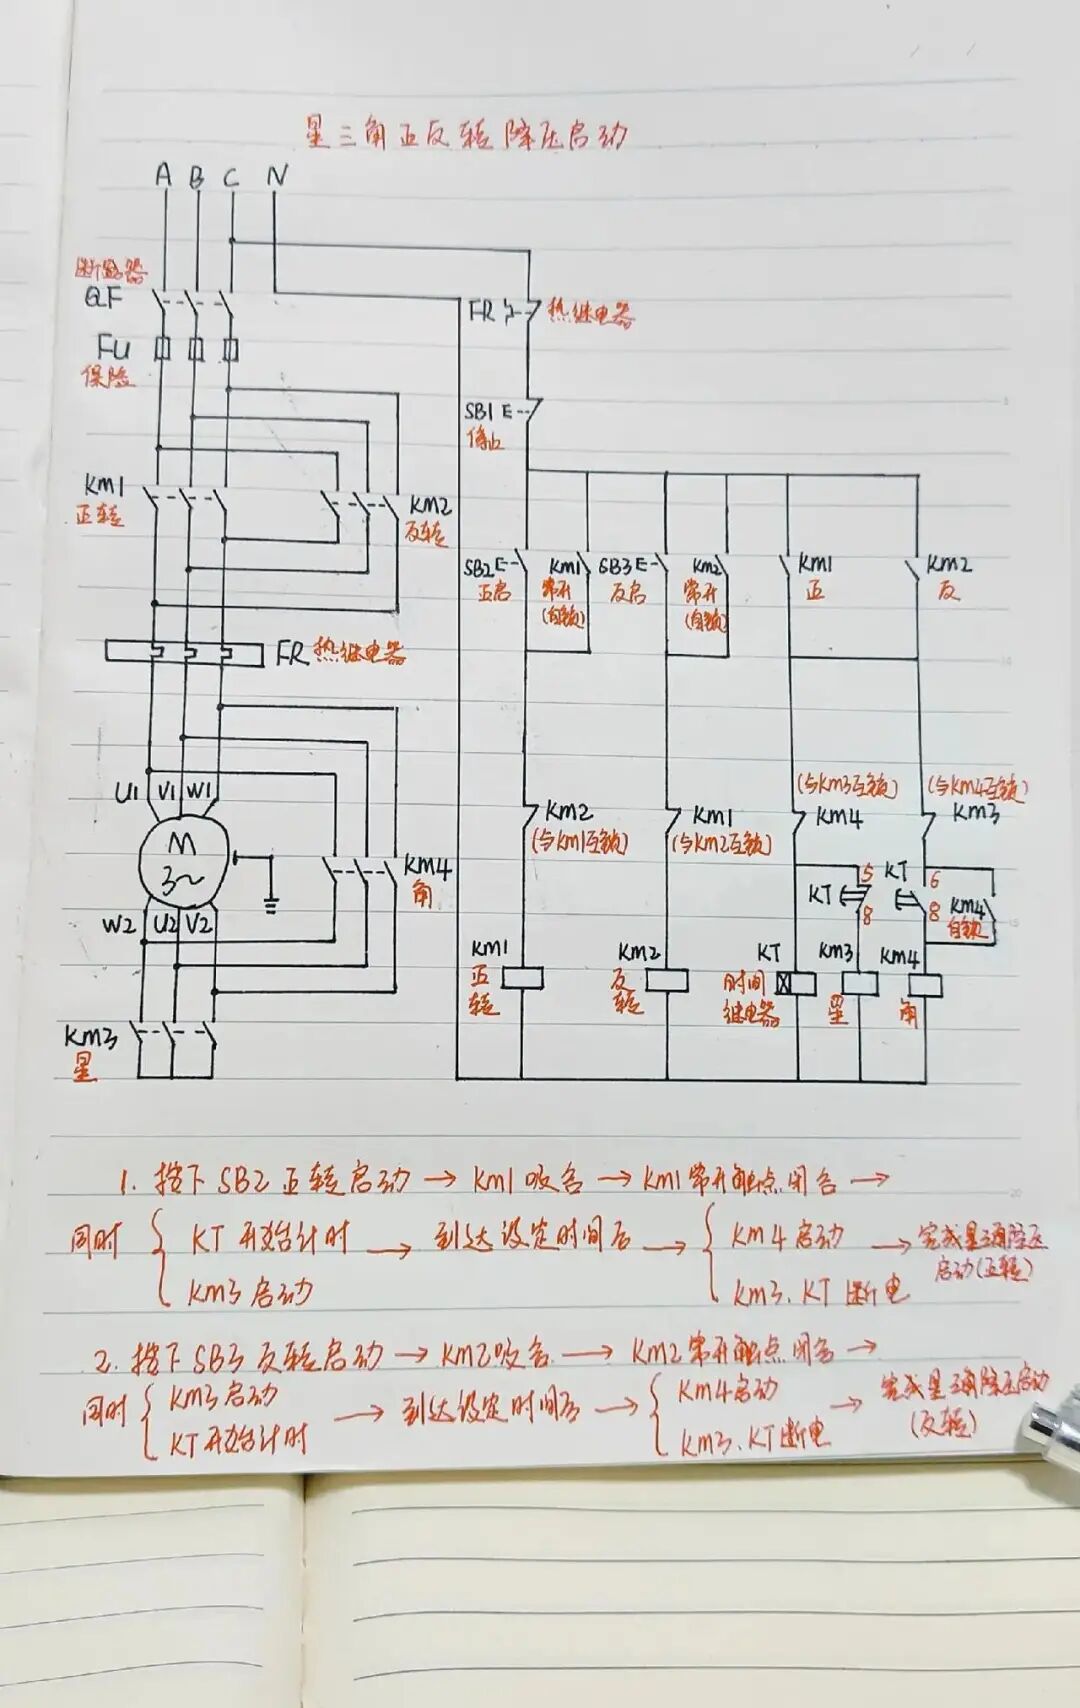 星三角正反转降压启动
A B C N
断路器
QF
FU
保险
FR 热继电器
SB1 E
停止
KM1
正转
KM2
反转
SB2 E
正启
KM1
常开
(自锁)
SB3 E
反启
KM2
常开
(自锁)
KM1
正
KM2
反
FR 热继电器
U1 V1 W1
M
3~
W2 U2 V2
KM4
角
KM3
星
KM2
(与KM1互锁)
KM1
(与KM2互锁)
(与KM3互锁)
KM4
(与KM4互锁)
KM3
KT 5
8
KT 6
8
KM4
自锁
KM1
正转
KM2
反转
KT
时间
继电器
KM3
星
KM4
角
1. 按下 SB2 正转启动 → KM1 吸合 → KM1 常开触点闭合 →
同时 { KT 开始计时 → 到达设定时间后 → { KM4 启动 → 完成星三角降压
KM3 启动 KM3、KT 断电 启动(正转)
2. 按下 SB3 反转启动 → KM2吸合 → KM2 常开触点闭合 →
同时 { KM3 启动 → 到达设定时间后 → { KM4启动 → 完成星三角降压启动
KT 开始计时 KM3、KT断电 (反转)